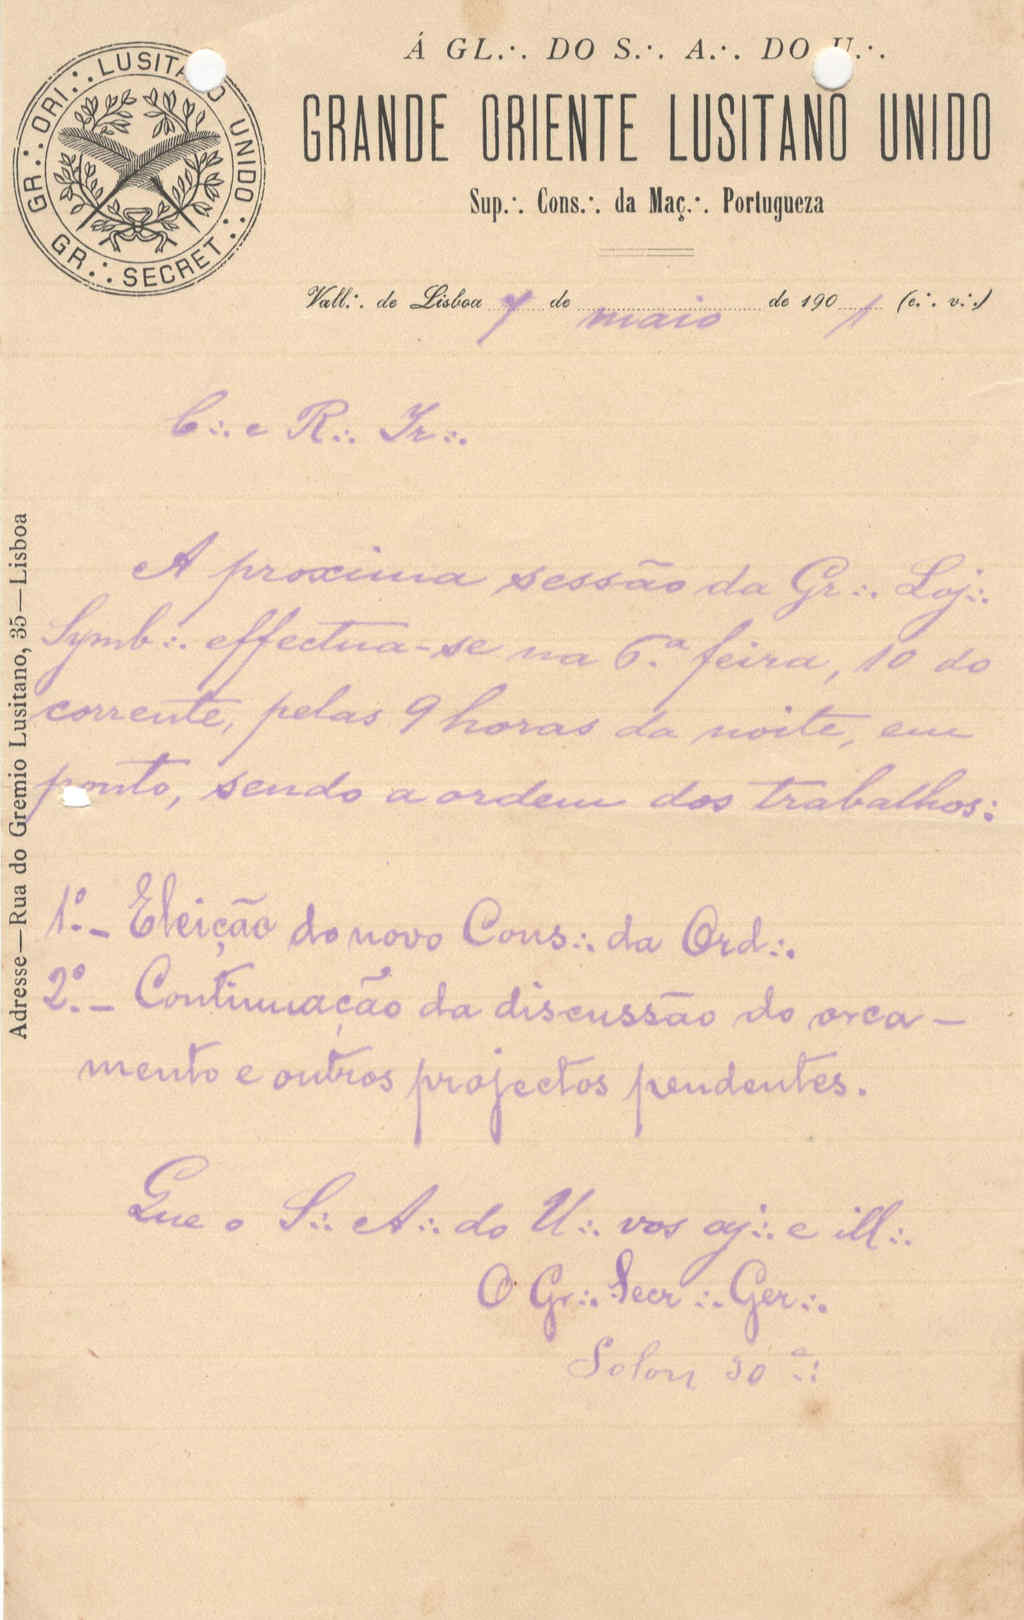 Á GL.·. DO S.·. A.·. DO U.·.
GR.·. ORI.·. LUSITANO UNIDO
GR.·. SECRET.·.
GRANDE ORIENTE LUSITANO UNIDO
Sup.·. Cons.·. da Maç.·. Portugueza
Vall.·. de Lisboa 7 de maio de 1901 (e.·. v.·.)
C.·. e R.·. Ir.·.
A proxima sessão da Gr.·. Loj.·.
Symb.·. effectua-se na 6.ª feira, 10 do
corrente, pelas 9 horas da noite, em
ponto, sendo a ordem dos trabalhos:
1.º - Eleição do novo Cons.·. da Ord.·.
2.º - Continuação da discussão do orça-
mento e outros projectos pendentes.
Que o S.·. A.·. do U.·. vos aj.·. e ill.·.
O Gr.·. Secr.·. Ger.·.
Solon 30
Adresse—Rua do Gremio Lusitano, 35—Lisboa